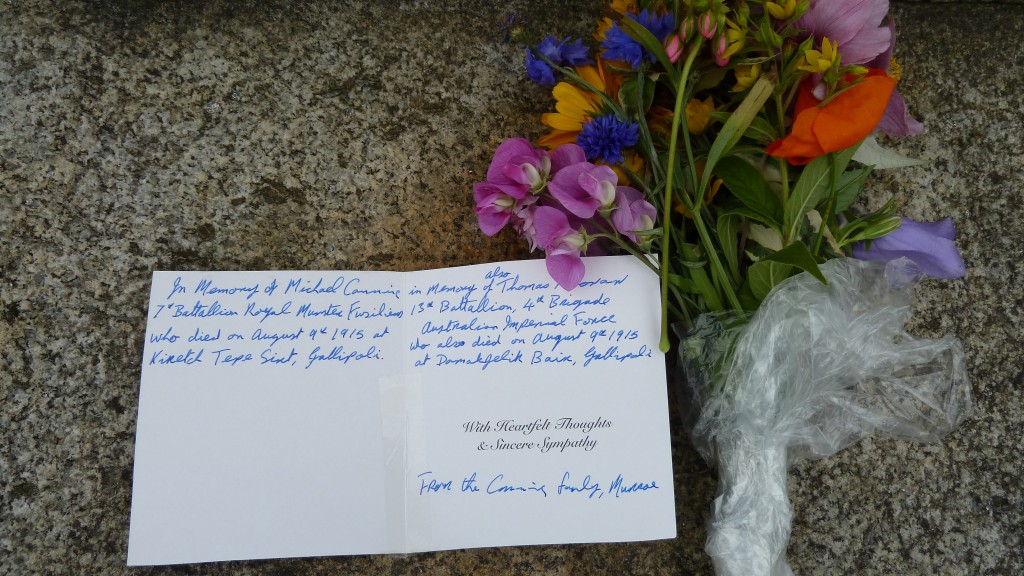 In Memory of Michael Canning
7th Battalion Royal Munster Fusiliers
who died on August 9th 1915 at
Kiretch Tepe Sirt, Gallipoli.
also
in memory of Thomas
13th Battalion, 4th Brigade
Australian Imperial Force
who also died on August 9th 1915
at Damakjelik Bair, Gallipoli
With Heartfelt Thoughts
& Sincere Sympathy
From the Canning family, Munroe